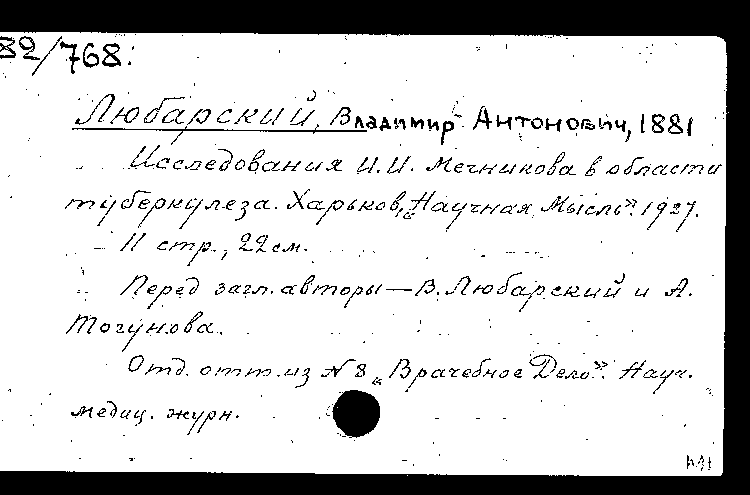 82/768:
Любарский, Владимир Антонович, 1881
Исследования И.И. Мечникова в области
туберкулеза. Харьков, „Научная Мысль". 1927.
11 стр., 22 см.
Перед загл. авторы — В. Любарский и А.
Тогунова.
Отд. отт. из N 8 „Врачебное Дело". Науч.
медиц. журн.